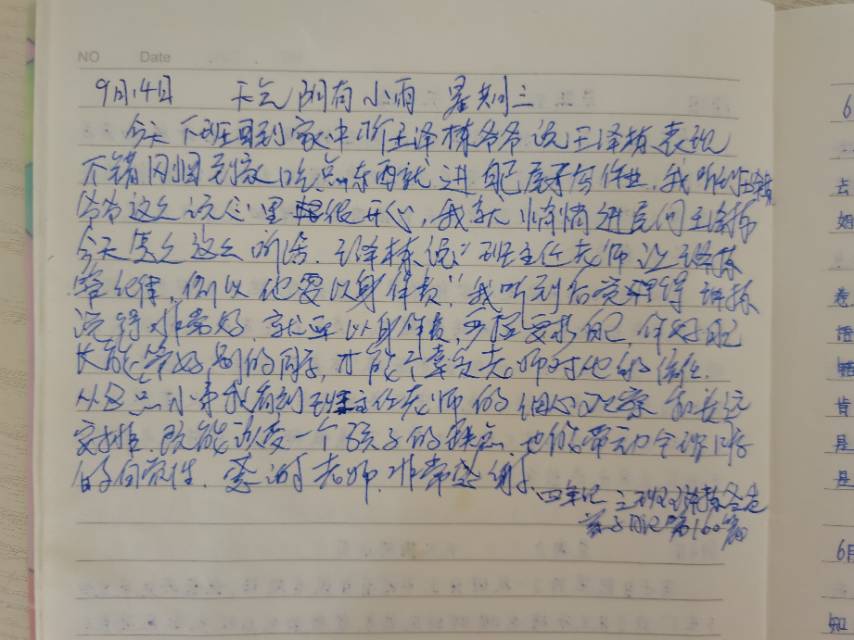 NO Date
9月14日 天气 阴有小雨 星期三
今天下班回到家中听王泽栋爷爷说王泽栋表现
不错刚回到家吃点东西就进自己房子写作业,我听到王泽栋
爷爷这么说心里很开心,我就悄悄进房问王泽栋
今天怎么这么听话.王泽栋说"班主任老师让王泽栋
管纪律,所以他要以身作责."我听到后觉得泽栋
说得非常好,就要以身作责,严格要求自己,作好自己
才能管好别的同学,才能不辜负老师对他的信任.
从这点小事我看到班主任老师的细心观察和长远
安排.既能改变一个孩子的缺点,也能带动全班同学
的向荣性.感谢老师.非常感谢!
四年纪 三班王泽栋爸爸
亲子日记第160篇
6
去
是
是
6月
知